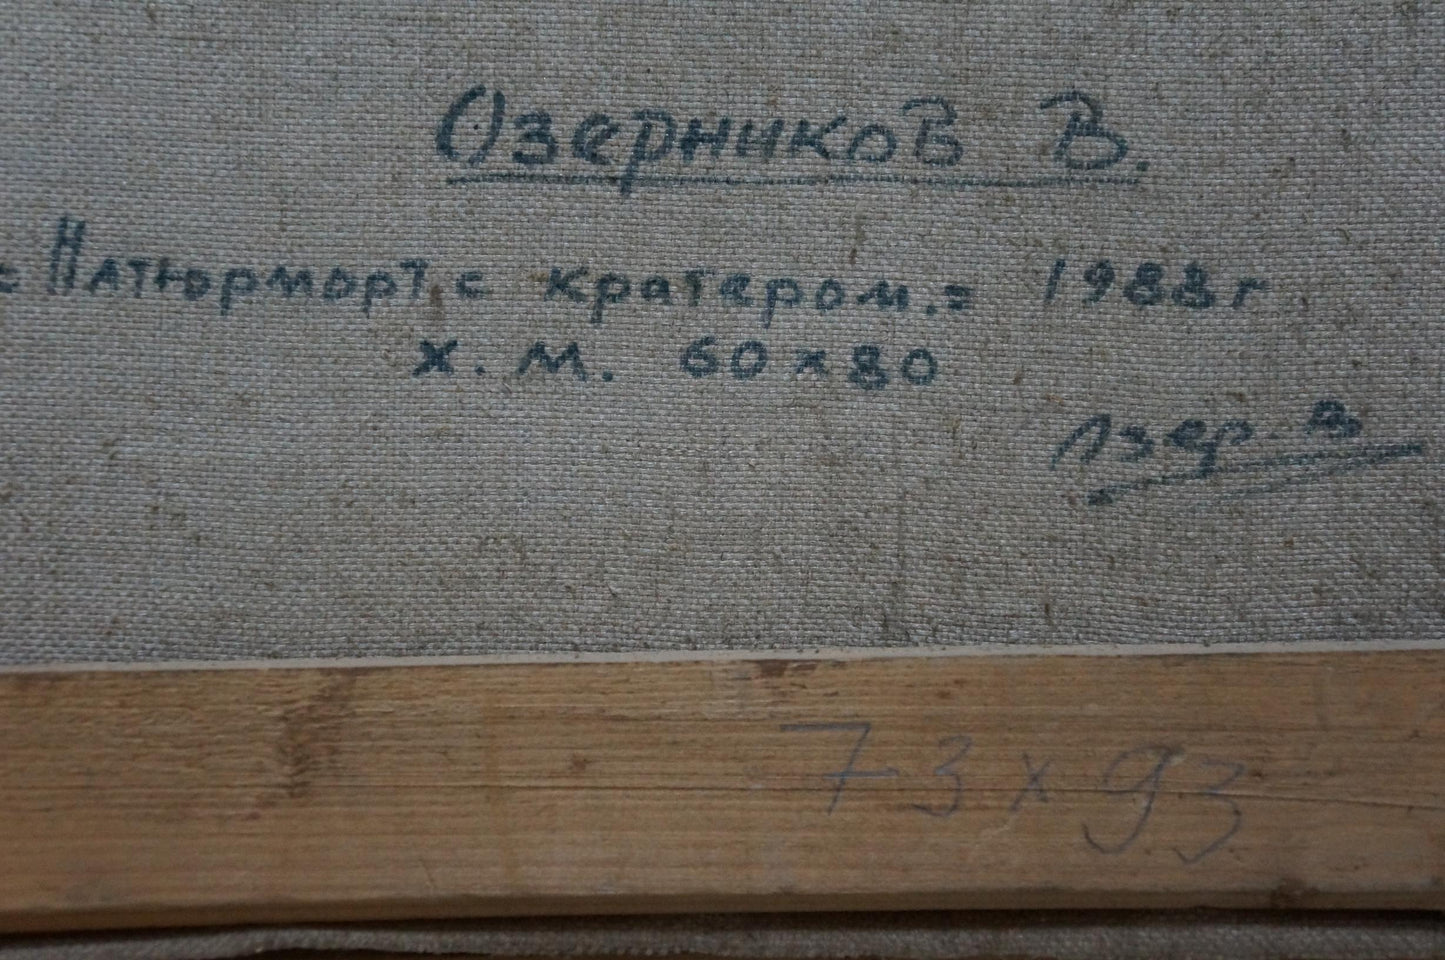 Озерников В.
= Натюрморт с кратером. = 1988 г
х. м. 60 х 80
Озер. В
73 х 93